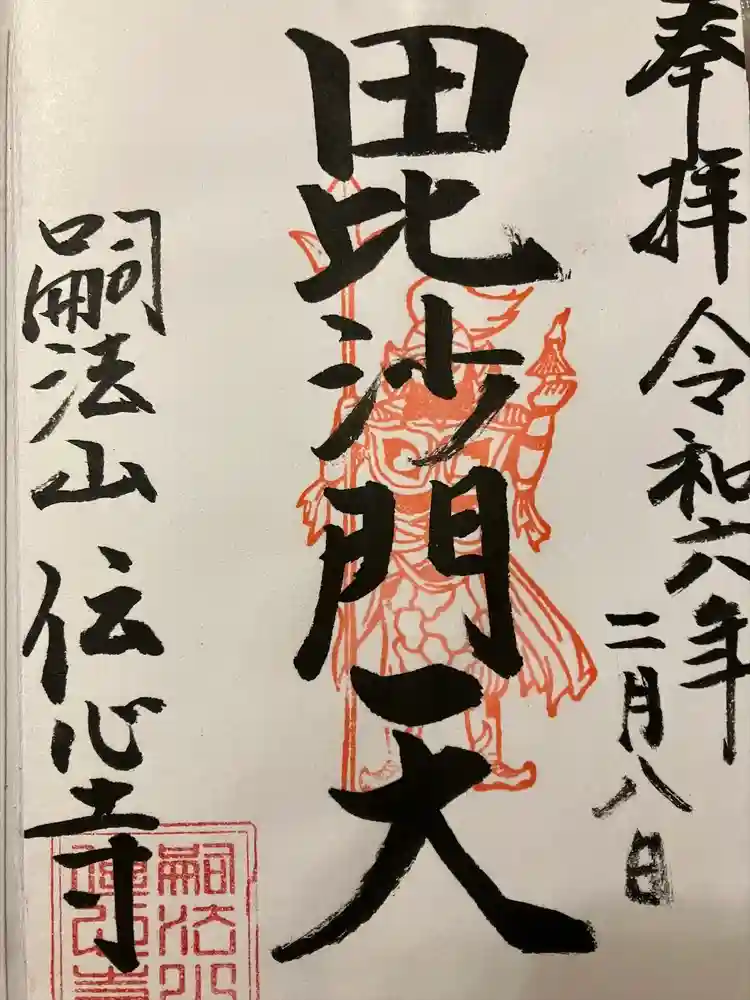 奉拝 令和六年
二月八日
毘沙門天
嗣法山 伝心寺
嗣法山